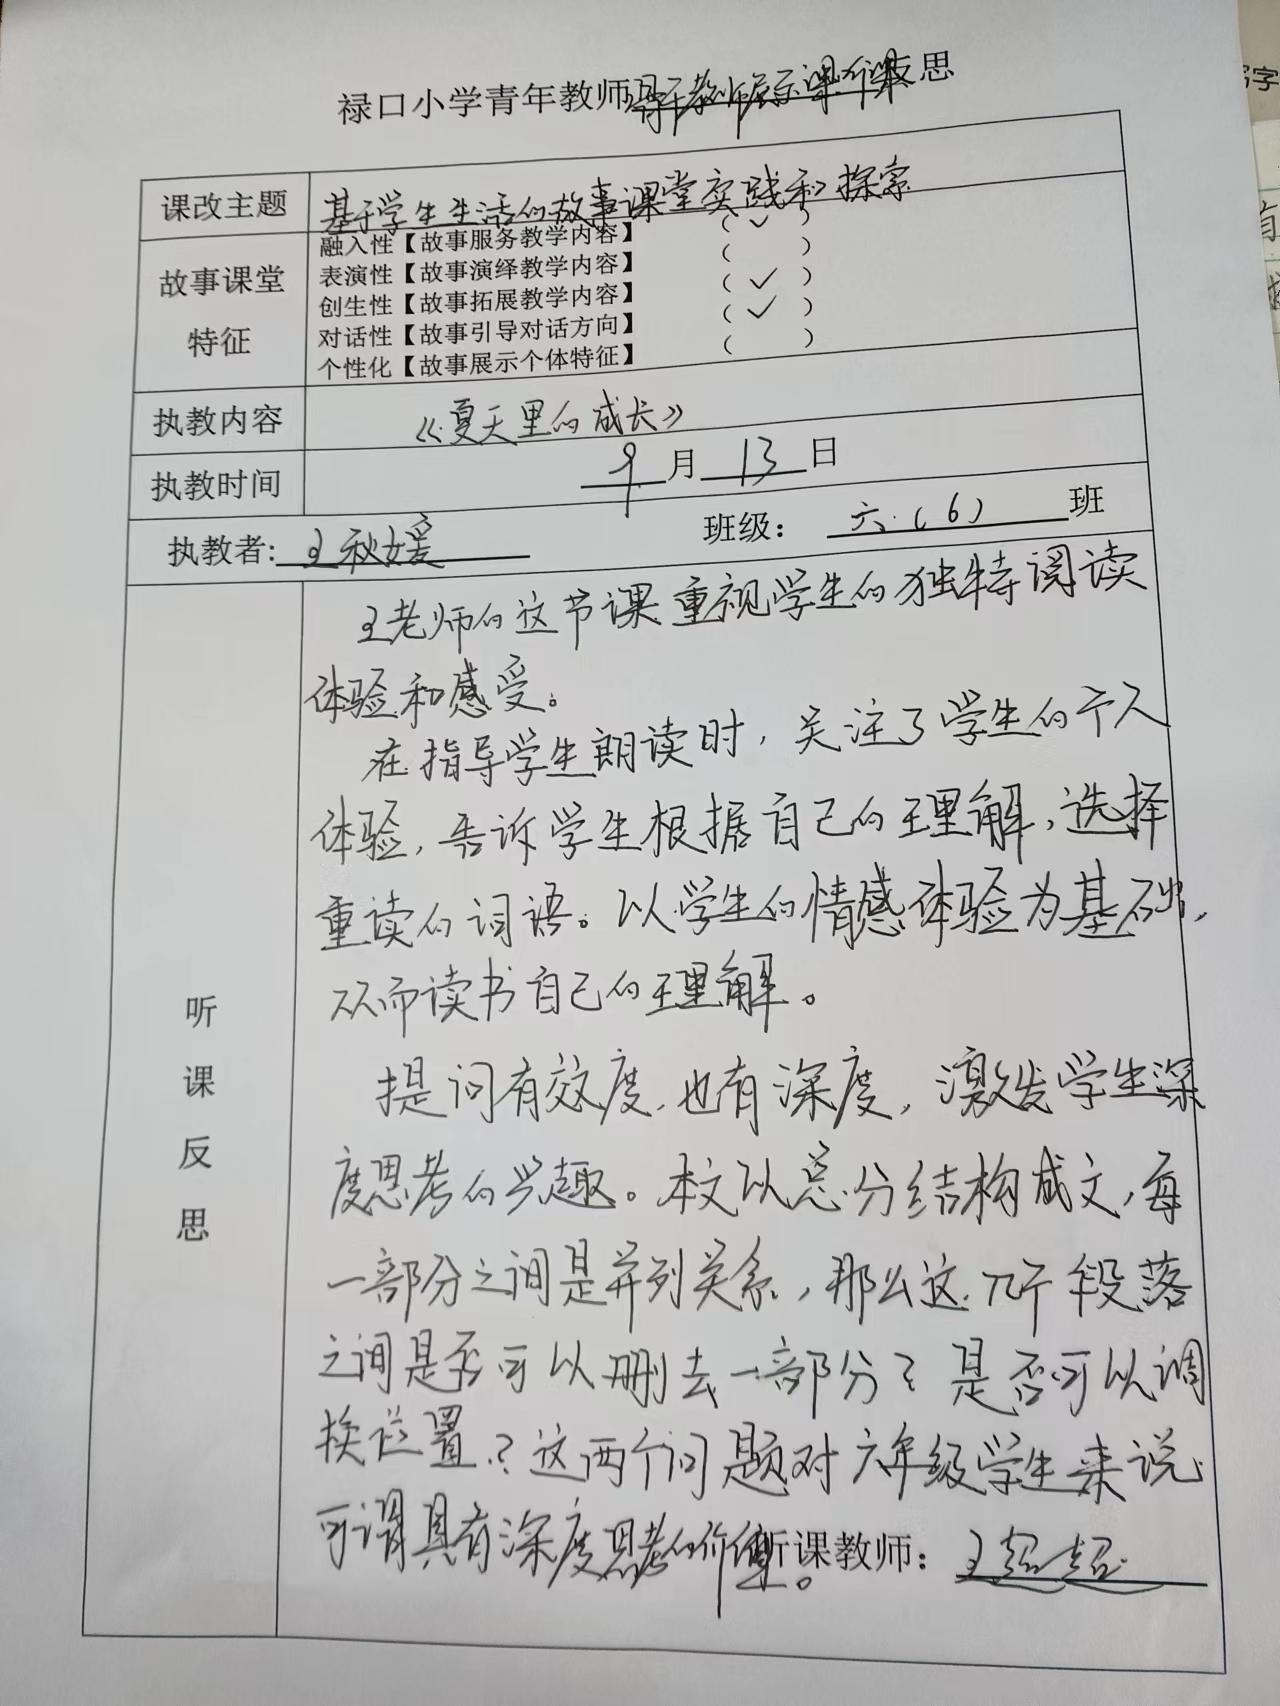 禄口小学青年教师骨干教师展示课听课反思
课改主题 基于学生生活的故事课堂实践和探索
故事课堂
特征
融入性【故事服务教学内容】 （ ✓ ）
表演性【故事演绎教学内容】 （ ）
创生性【故事拓展教学内容】 （ ✓ ）
对话性【故事引导对话方向】 （ ✓ ）
个性化【故事展示个体特征】 （ ）
执教内容 《夏天里的成长》
执教时间 9 月 13 日
执教者: 王秋媛 班级： 六（6） 班
听
课
反
思
王老师的这节课重视学生的独特阅读
体验和感受。
在指导学生朗读时，关注了学生的个人
体验，告诉学生根据自己的理解，选择
重读的词语。以学生的情感体验为基础，
从而读书自己的理解。
提问有效度，也有深度，激发学生深
度思考的兴趣。本文以总分结构成文，每
一部分之间是并列关系，那么这几个段落
之间是否可以删去一部分？是否可以调
换位置？这两个问题对六年级学生来说
可谓具有深度思考的价值。
听课教师： 王超超